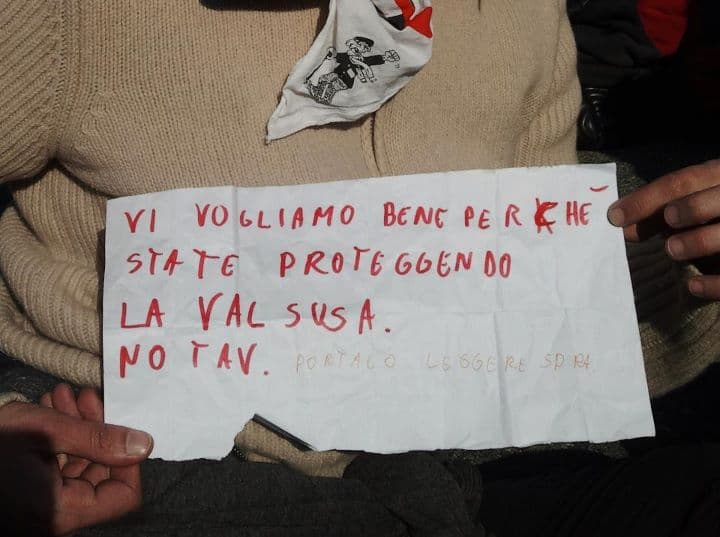 VI VOGLIAMO BENE PERCHÉ
STATE PROTEGGENDO
LA VAL SUSA.
NO TAV. PORTALO LEGGERE